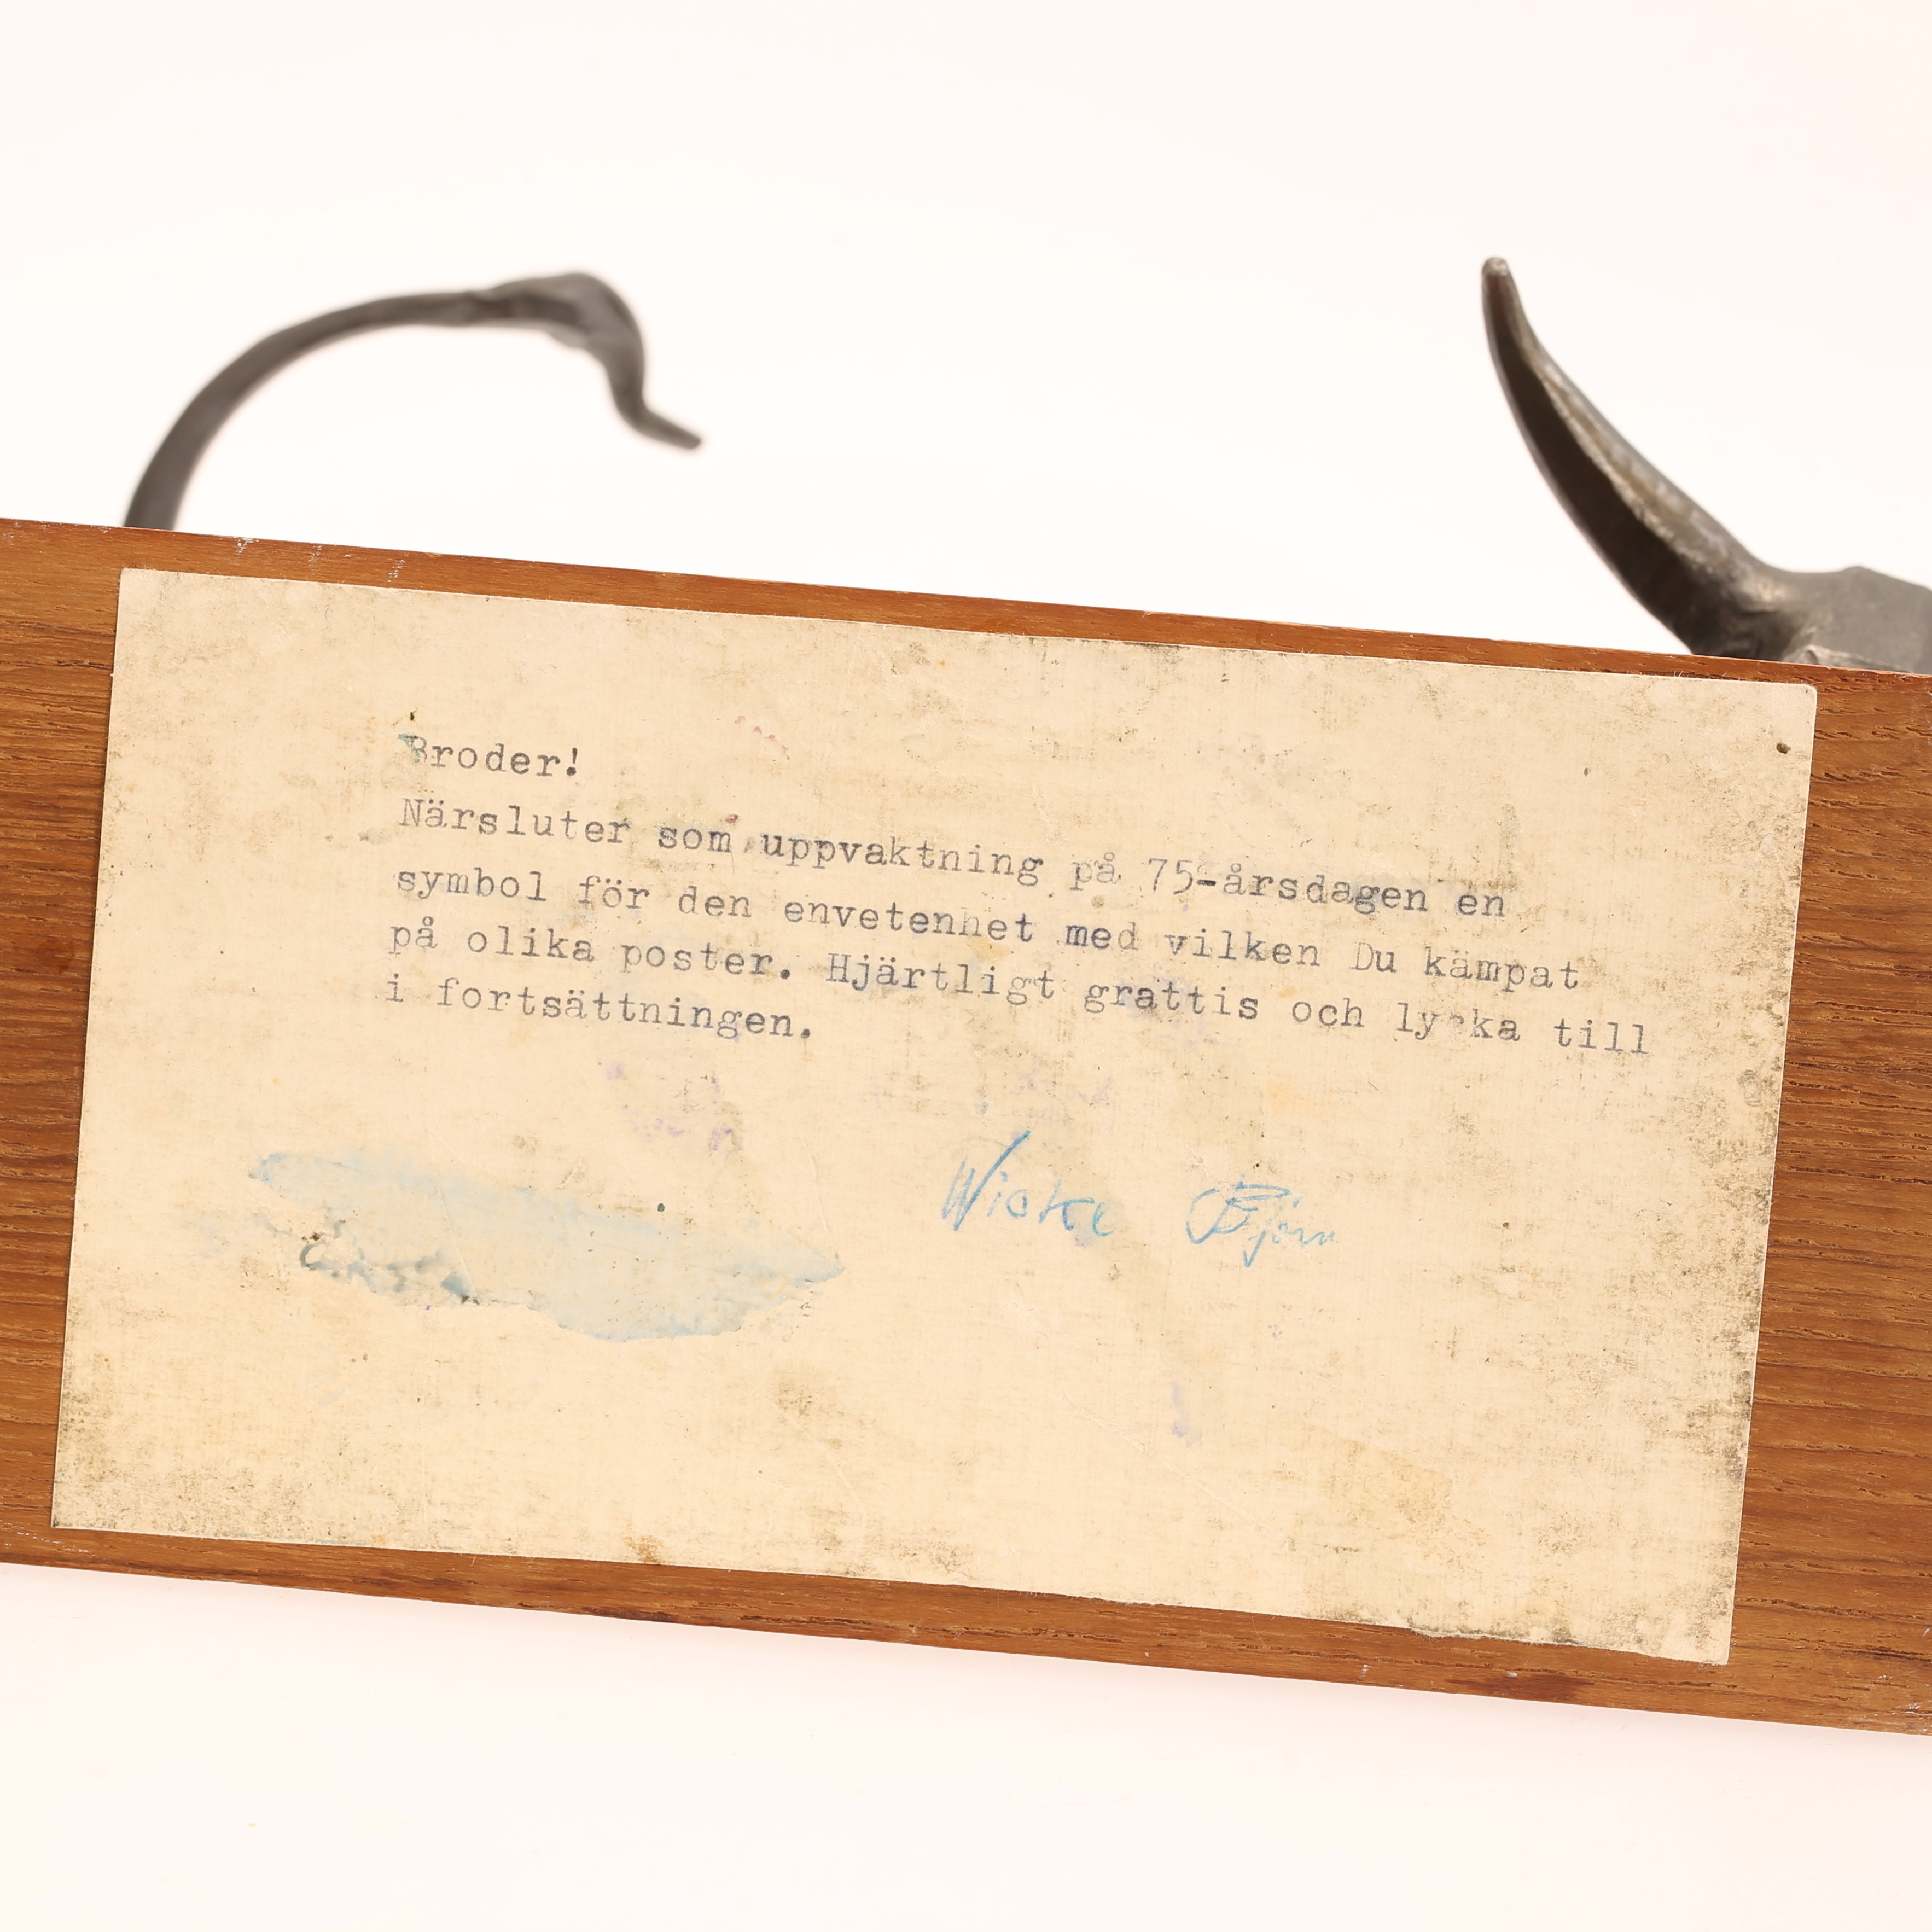 Broder!
Närsluter som uppvaktning på 75-årsdagen en
symbol för den envetenhet med vilken Du kämpat
på olika poster. Hjärtligt grattis och lycka till
i fortsättningen.
Wicke Björn